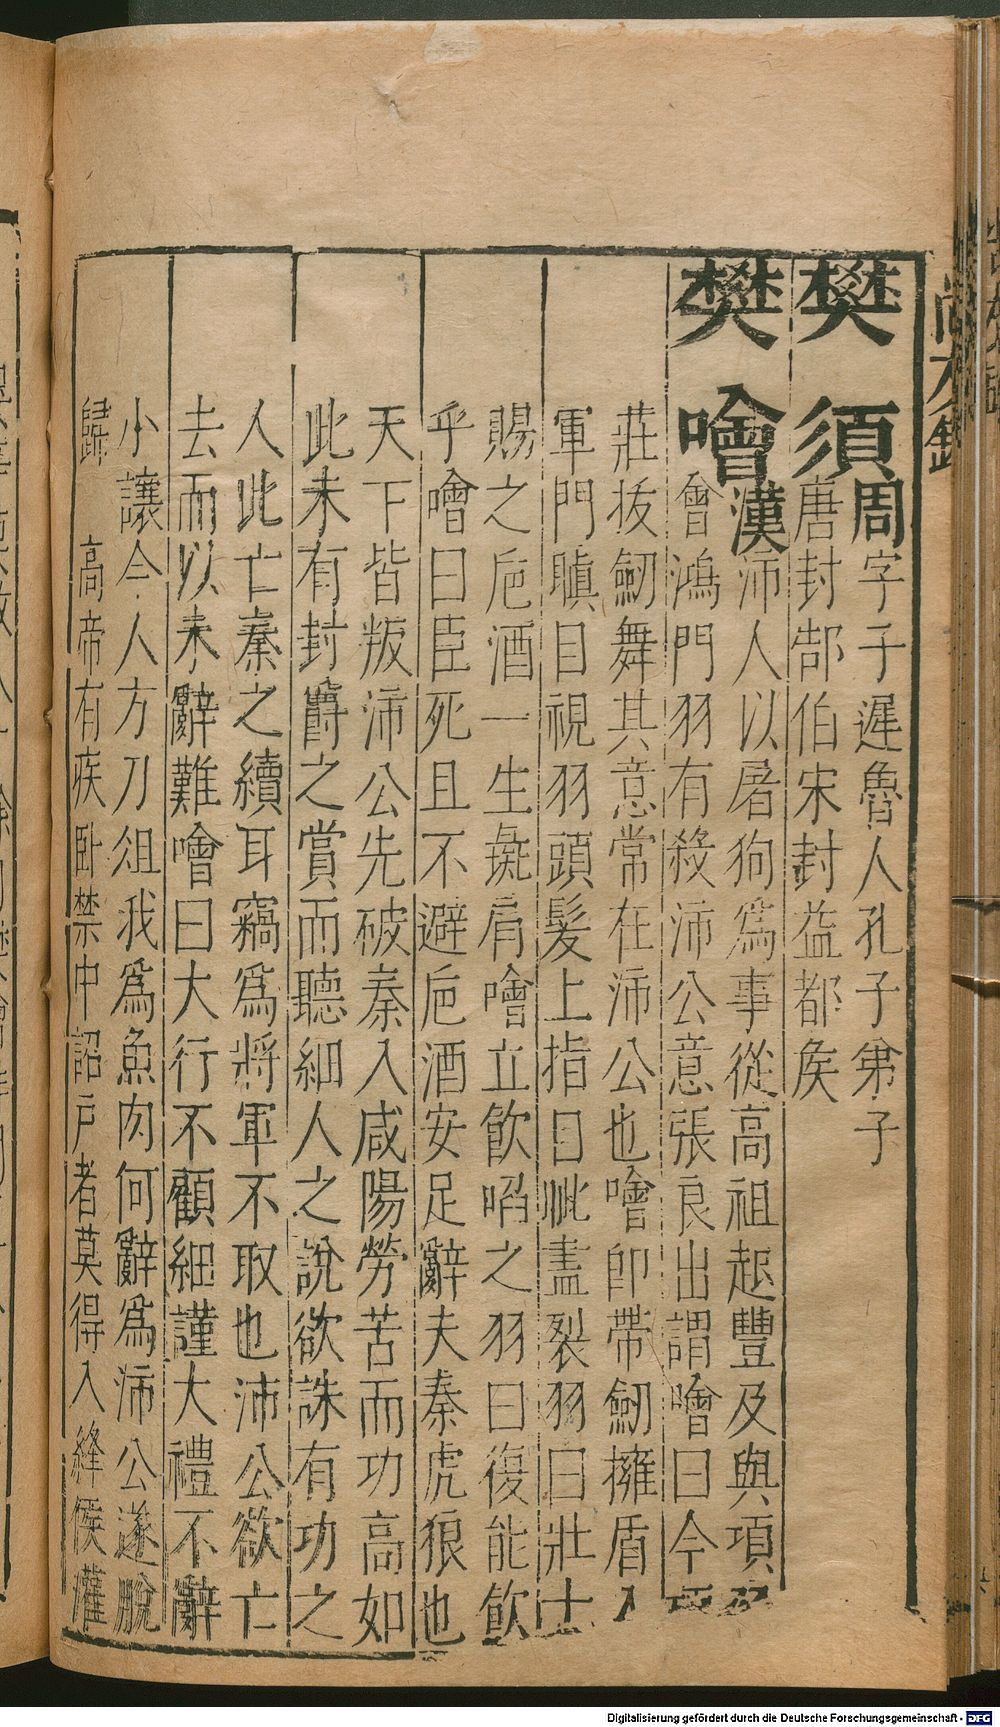 樊須 周 字子遲魯人孔子弟子
唐封郜伯宋封益都矦
樊噲 漢 沛人以屠狗爲事從高祖起豐及與項羽
會鴻門羽有殺沛公意張良出謂噲曰今項
莊拔劒舞其意常在沛公也噲卽帶劒擁盾入
軍門瞋目視羽頭髮上指目眦盡裂羽曰壯士
賜之巵酒一生彘肩噲立飮啗之羽曰復能飮
乎噲曰臣死且不避巵酒安足辭夫秦虎狼也
天下皆叛沛公先破秦入咸陽勞苦而功高如
此未有封爵之賞而聽細人之說欲誅有功之
人此亡秦之續耳竊爲將軍不取也沛公欲亡
去而以未辭難噲曰大行不顧細謹大禮不辭
小讓今人方刀俎我爲魚肉何辭爲沛公遂脫
歸 高帝有疾臥禁中詔戶者莫得入絳侯灌
Digitalisierung gefördert durch die Deutsche Forschungsgemeinschaft - DFG